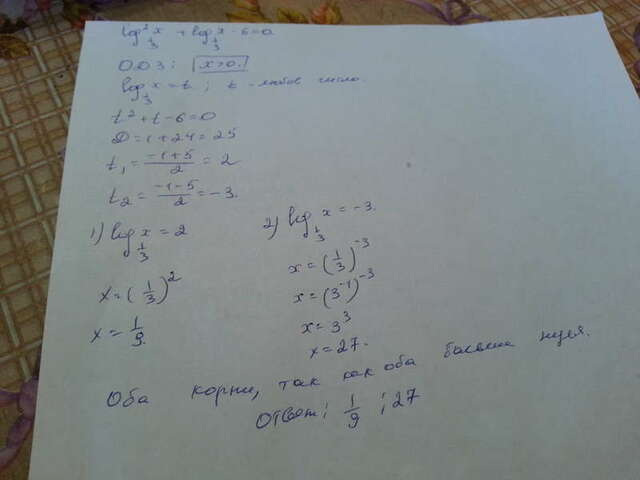 log²_{1/3} x + log_{1/3} x - 6 = 0
О.О.З: x>0.
log_{1/3} x = t ; t - любое число.
t² + t - 6 = 0
D = 1 + 24 = 25
t₁ = (-1+5)/2 = 2
t₂ = (-1-5)/2 = -3.
1) log_{1/3} x = 2
x = (1/3)²
x = 1/9.
2) log_{1/3} x = -3.
x = (1/3)⁻³
x = (3⁻¹)⁻³
x = 3³
x = 27.
Оба корни, так как оба больше нуля.
Ответ: 1/9 ; 27